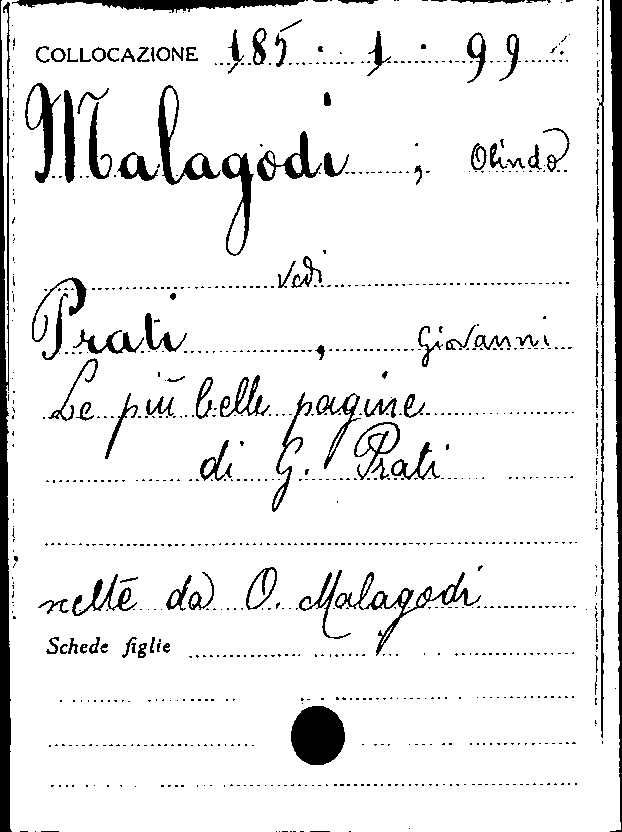 COLLOCAZIONE 185 . 1 . 99
Malagodi, Olindo
Vedi
Prati, Giovanni
Le più belle pagine
di G. Prati
scelte da O. Malagodi
Schede figlie